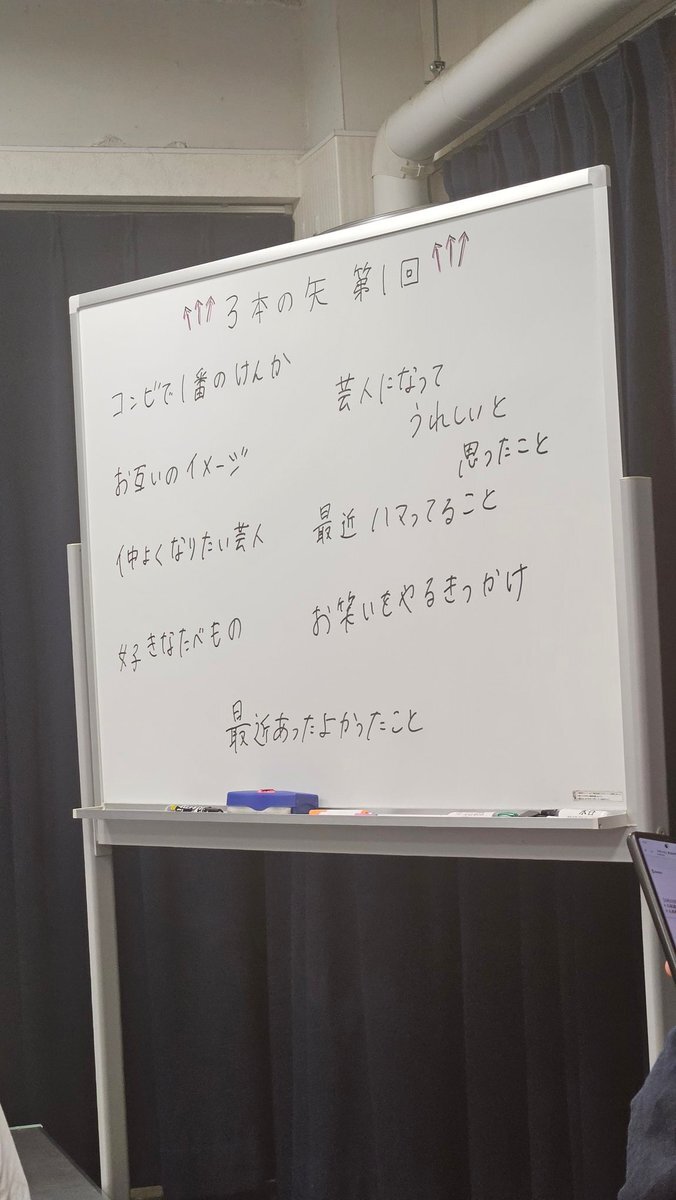 ↑↑↑ 3本の矢 第1回 ↑↑↑
コンビで1番のけんか
お互いのイメージ
仲よくなりたい芸人
好きなたべもの
芸人になって
うれしいと
思ったこと
最近ハマってること
お笑いをやるきっかけ
最近あったよかったこと